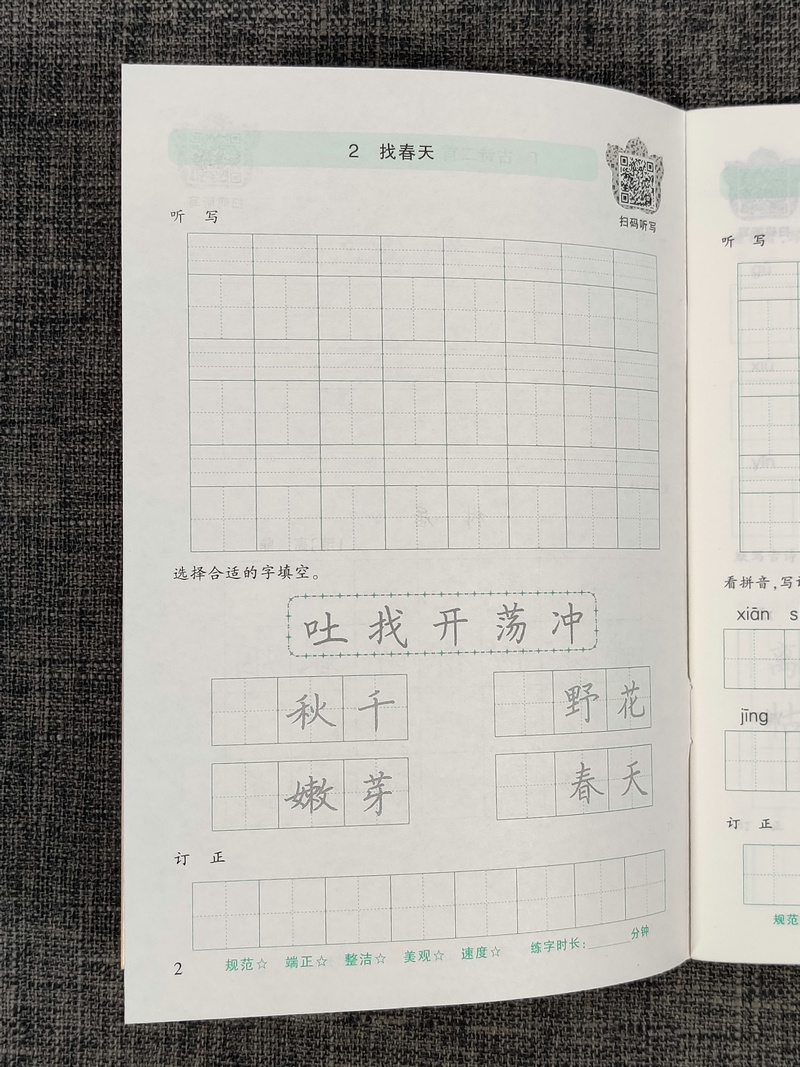 2 找春天
扫码听写
听 写
选择合适的字填空。
吐 找 开 荡 冲
秋千
野花
嫩芽
春天
订 正
规范☆ 端正☆ 整洁☆ 美观☆ 速度☆ 练字时长:______分钟
2
听 写
看拼音,写
xiān s
jīng
订 正
规范